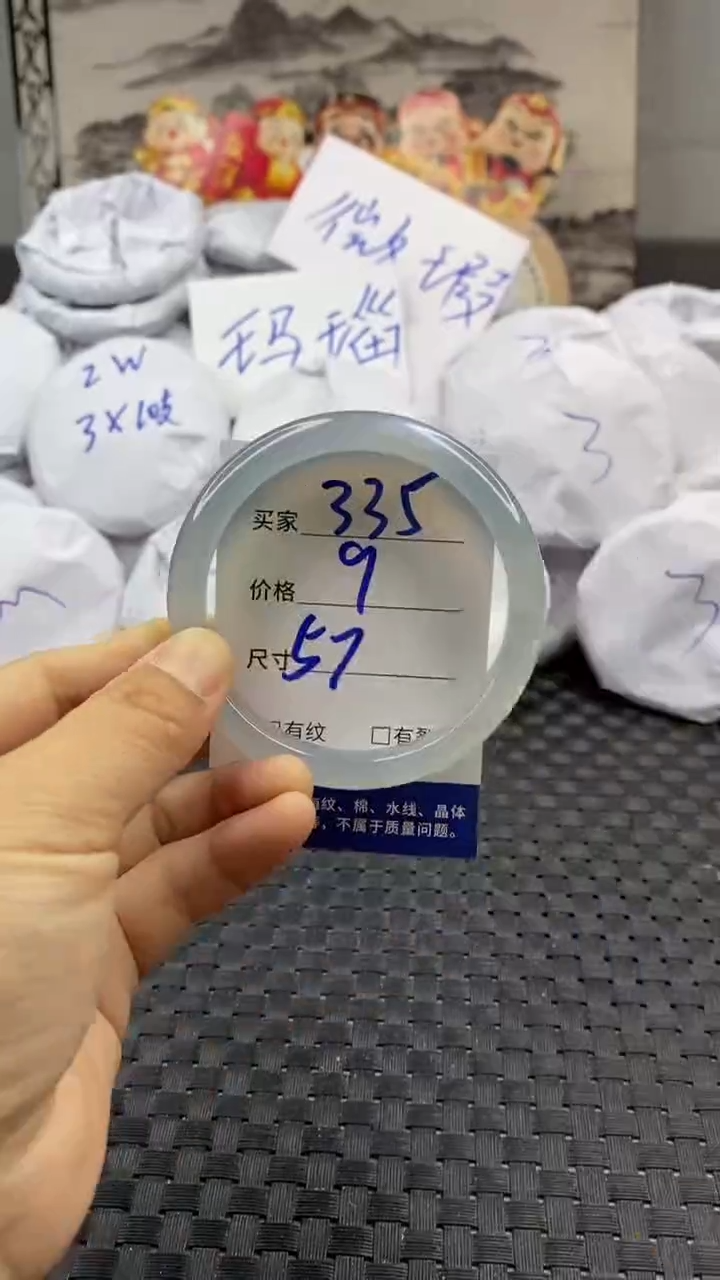 玛瑙
2W
3X1收
3
3
买家 335
价格 9
尺寸 57
有纹 □有裂
有纹、棉、水线、晶体
，不属于质量问题。